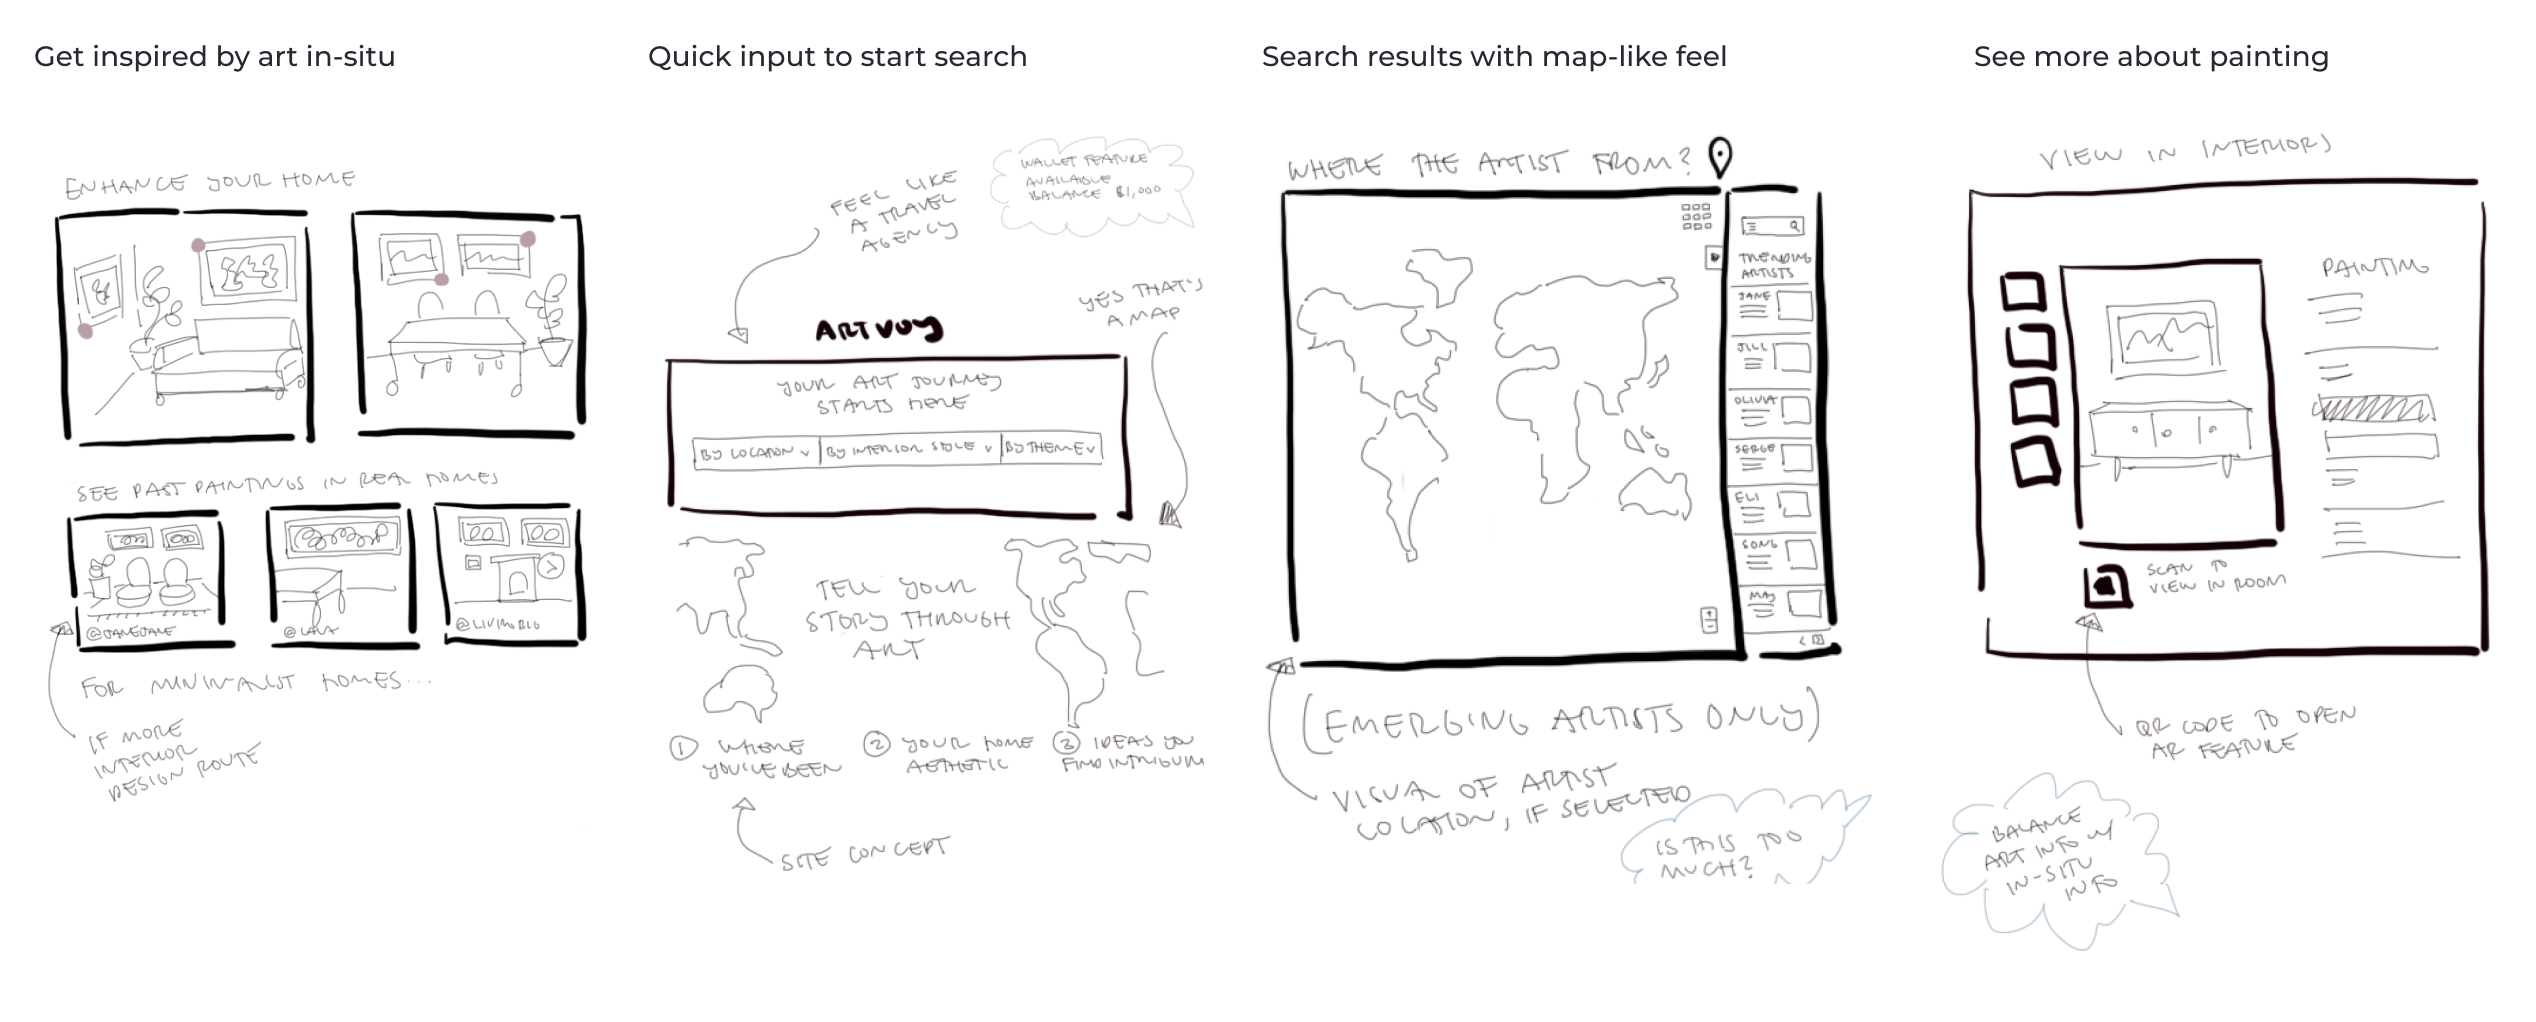 Get inspired by art in-situ
ENHANCE YOUR HOME
SEE PAST PAINTINGS IN REAL HOMES
@JANEJANE
@LANA
@LIVINGBIG
FOR MINIMALIST HOMES...
IF MORE
INTERIOR
DESIGN ROUTE
Quick input to start search
FEEL LIKE
A TRAVEL
AGENCY
WALLET FEATURE
AVAILABLE
BALANCE $1,000
YES THAT'S
A MAP
ARTVOY
YOUR ART JOURNEY
STARTS HERE
BY LOCATION
BY INTERIOR STYLE
BY THEME
TELL YOUR
STORY THROUGH
ART
1 WHERE
YOU'VE BEEN
2 YOUR HOME
AETHETIC
3 IDEAS YOU
FIND
SITE CONCEPT
Search results with map-like feel
WHERE THE ARTIST FROM?
TRENDING
ARTISTS
JANE
JILL
OLIVIA
SERGE
ELI
SONG
MAJ
(EMERGING ARTISTS ONLY)
VISUAL OF ARTIST
LOCATION, IF SELECTED
IS THIS TOO
MUCH?
See more about painting
VIEW IN INTERIORS
PAINTING
SCAN TO
VIEW IN ROOM
QR CODE TO OPEN
AR FEATURE
BALANCE
ART INFO W/
IN-SITU
INFO